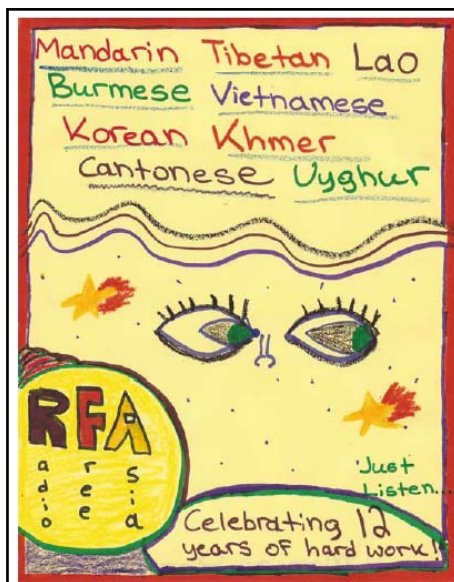 Mandarin Tibetan Lao
Burmese Vietnamese
Korean Khmer
Cantonese Uyghur
RFA
adio ree sia
Just
Listen...
Celebrating 12
years of hard work!